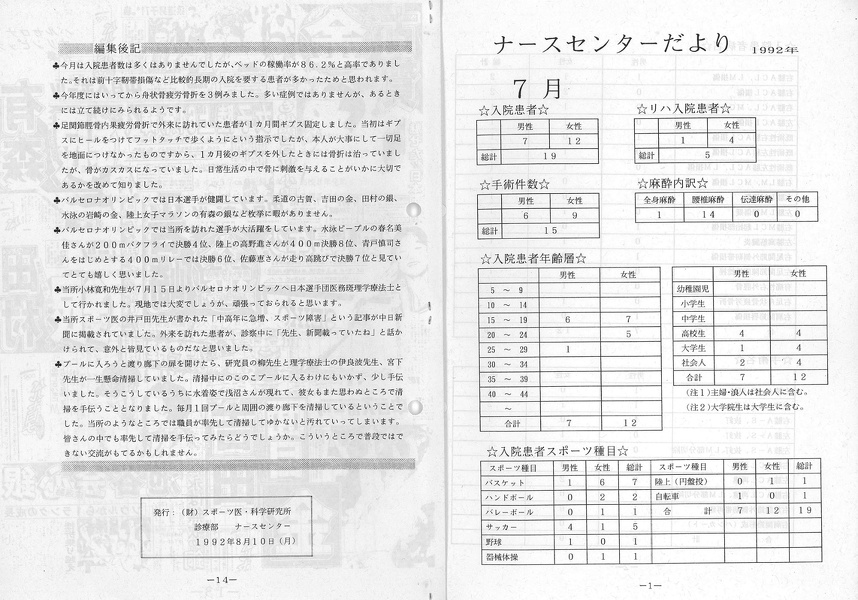 編集後記
♣今月は入院患者数は多くはありませんでしたが、ベッドの稼働率が８６.２％と高率でありまし
た。それは前十字靭帯損傷など比較的長期の入院を要する患者が多かったためと思われます。
♣今年度にはいってから舟状骨疲労骨折を３例みました。多い症例ではありませんが、あるとき
には立て続けにみられるようです。
♣足関節脛骨内果疲労骨折で外来に訪れていた患者が１カ月間ギプス固定しました。当初はギプ
スにヒールをつけてフットタッチで歩くようにという指示でしたが、本人が大事にして一切足
を地面につけなかったものですから、１カ月後のギプスを外したときには骨折は治っていまし
たが、骨がカスカスになっていました。日常生活の中で骨に刺激を与えることがいかに大切で
あるかを改めて知りました。
♣バルセロナオリンピックでは日本選手が健闘しています。柔道の古賀、吉田の金、田村の銀、
水泳の岩崎の金、陸上女子マラソンの有森の銀など枚挙に暇がありません。
♣バルセロナオリンピックでは当所を訪れた選手が大活躍をしています。水泳ピープルの春名美
佳さんが２００ｍバタフライで決勝４位、陸上の高野進さんが４００ｍ決勝８位、青戸慎司さ
んをはじめとする４００ｍリレーでは決勝６位、佐藤恵さんが走り高跳びで決勝７位と見てい
てとても嬉しく思いました。
♣当所小林寛和先生が７月１５日よりバルセロナオリンピックへ日本選手団医務班理学療法士と
して行かれました。現地では大変でしょうが、頑張っておられると思います。
♣当所スポーツ医の井戸田先生が書かれた「中高年に急増、スポーツ障害」という記事が中日新
聞に掲載されていました。外来を訪れた患者が、診察中に「先生、新聞載っていたね」と話か
けられて、意外と皆見ているものだなと思いました。
♣プールに入ろうと渡り廊下の扉を開けたら、研究員の柳先生と理学療法士の伊良波先生、宮下
先生が一生懸命清掃していました。清掃中にのこのこプールに入るわけにもいかず、少し手伝
いました。そうこうしているうちに水着姿で浅沼さんが現れて、彼女もまた思わぬところで清
掃を手伝うこととなりました。毎月１回プールと周囲の渡り廊下を清掃しているということで
した。当所のようなところでは職員が率先して清掃してゆかないと汚れていってしまいます。
皆さんの中でも率先して清掃を手伝ってみたらどうでしょうか。こういうところで普段ではで
きない交流がもてるかもしれません。
発行：（財）スポーツ医・科学研究所
診療部　ナースセンター
１９９２年８月１０日（月）
－14－
ナースセンターだより 1992年
７月
☆入院患者☆
男性 女性
7 12
総計 19
☆リハ入院患者☆
男性 女性
1 4
総計 5
☆手術件数☆
男性 女性
6 9
総計 15
☆麻酔内訳☆
全身麻酔 腰椎麻酔 伝達麻酔 その他
1 14 0 0
☆入院患者年齢層☆
男性 女性
5 ～ 9
10 ～ 14
15 ～ 19 6 7
20 ～ 24 5
25 ～ 29 1
30 ～ 34
35 ～ 39
40 ～ 44
～
合計 7 12
男性 女性
幼稚園児
小学生
中学生
高校生 4 4
大学生 1 4
社会人 2 4
合計 7 12
（注１）主婦・浪人は社会人に含む。
（注２）大学院生は大学生に含む。
☆入院患者スポーツ種目☆
スポーツ種目 男性 女性 総計 スポーツ種目 男性 女性 総計
バスケット 1 6 7 陸上（円盤投） 0 1 1
ハンドボール 0 2 2 自転車 1 0 1
バレーボール 0 1 1 合計 7 12 19
サッカー 4 1 5
野球 1 0 1
器械体操 0 1 1
－1－